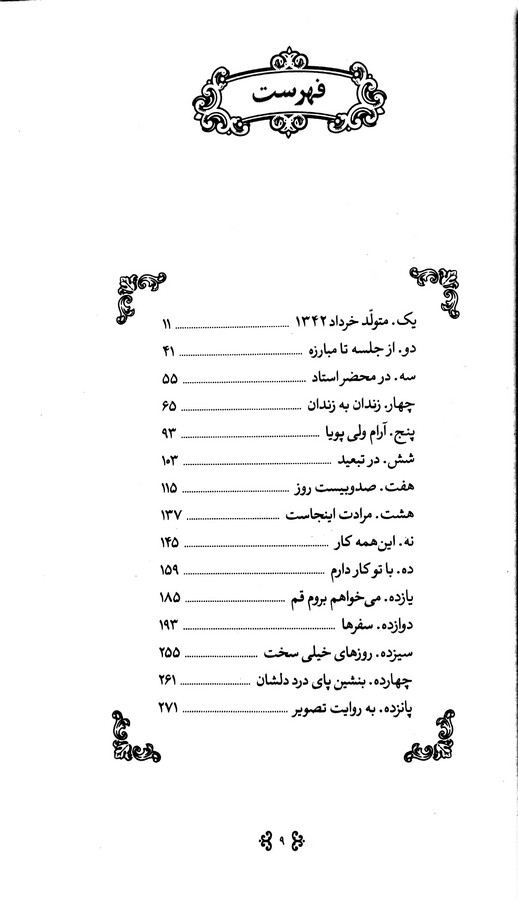 فهرست
یک. متولّد خرداد ۱۳۴۲ ........................ ۱۱
دو. از جلسه تا مبارزه ........................ ۴۱
سه. در محضر استاد ........................ ۵۵
چهار. زندان به زندان ........................ ۶۵
پنج. آرام ولی پویا ........................ ۹۳
شش. در تبعید ........................ ۱۰۳
هفت. صدوبیست روز ........................ ۱۱۵
هشت. مرادت اینجاست ........................ ۱۳۷
نه. این‌همه کار ........................ ۱۴۵
ده. با تو کار دارم ........................ ۱۵۹
یازده. می‌خواهم بروم قم ........................ ۱۸۵
دوازده. سفرها ........................ ۱۹۳
سیزده. روزهای خیلی سخت ........................ ۲۵۵
چهارده. بنشین پای درد دلشان ........................ ۲۶۱
پانزده. به روایت تصویر ........................ ۲۷۱
۹